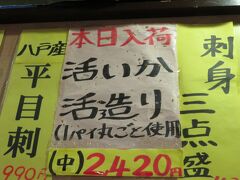 本日入荷
活いか
活造り
(1パイ丸ごと使用)
(中)2420円
刺身
三点盛
八戸産
平目刺
990円